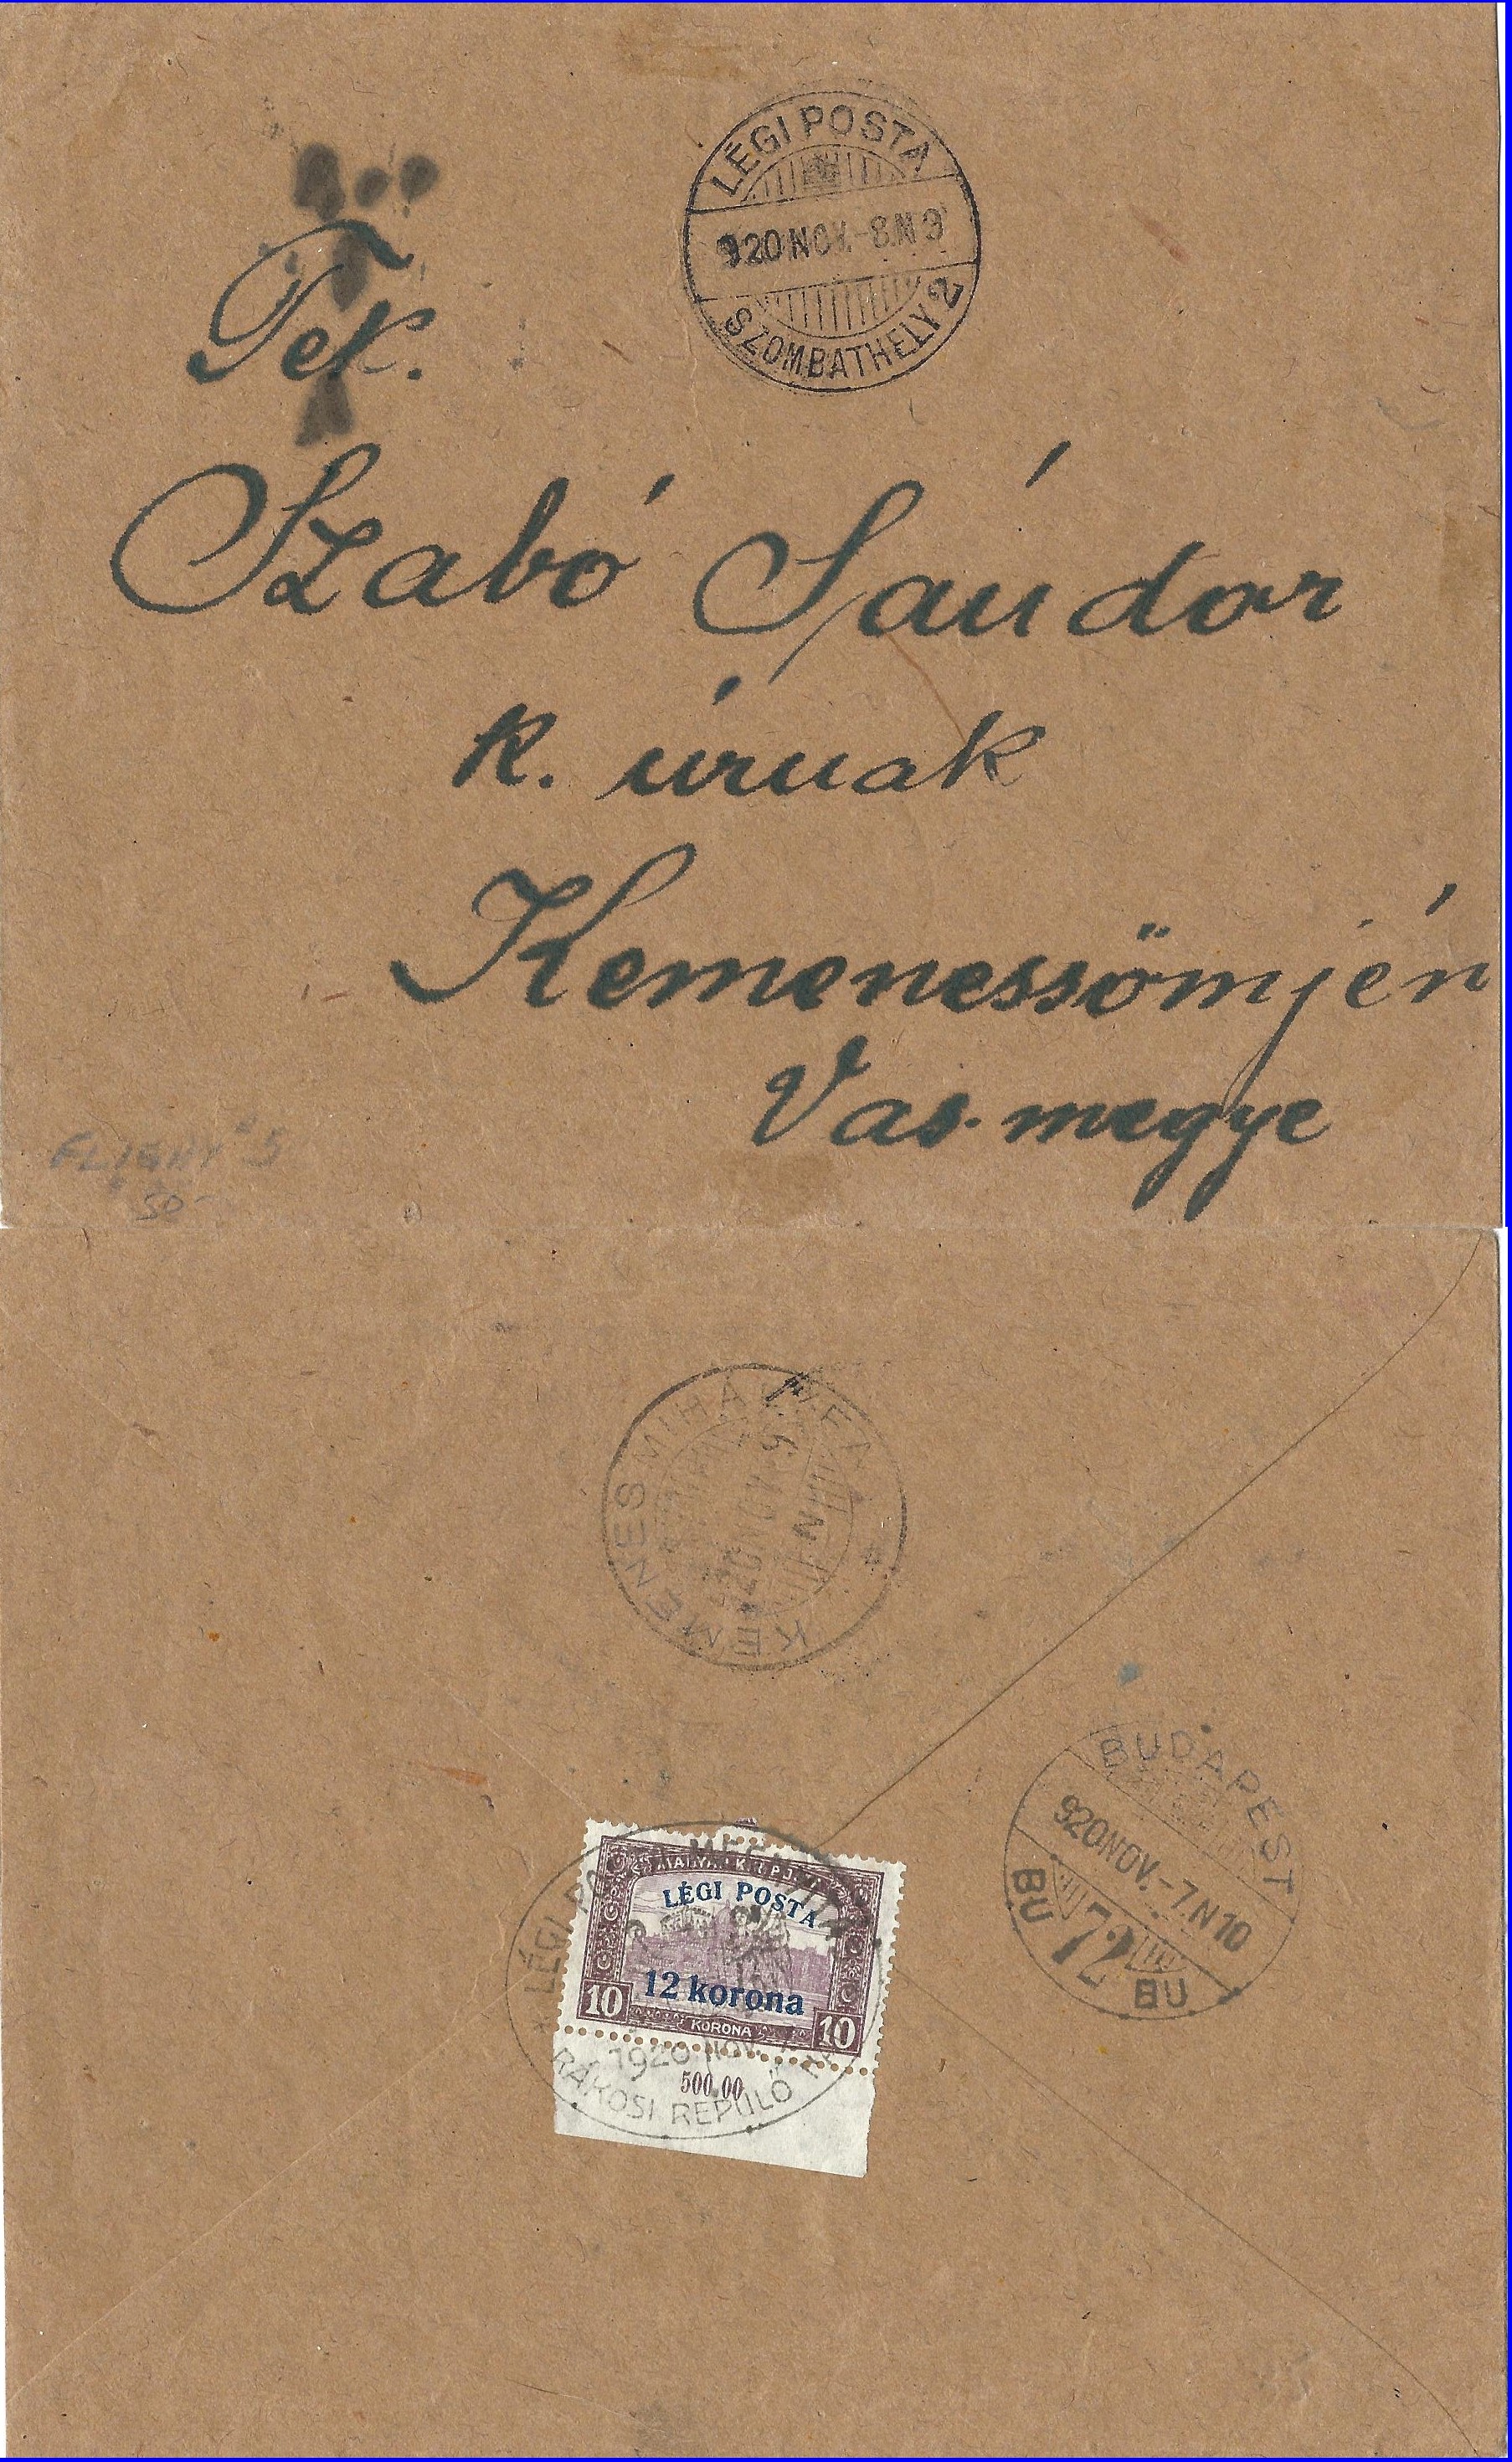 LÉGI POSTA
920 NOV.-8.N 9
SZOMBATHELY 2
Tek.
Szabó Sándor
k. úrnak
Kemenessömjén
Vas. megye
FLIGHT #5
50-
KEMENESMIHÁLYFA
BUDAPEST
920 NOV.-7.N 10
BU 72 BU
LÉGI POSTA
12 korona
10 KORONA 10
1920 NOV.
500.00
RÁKOSI REPÜLŐ